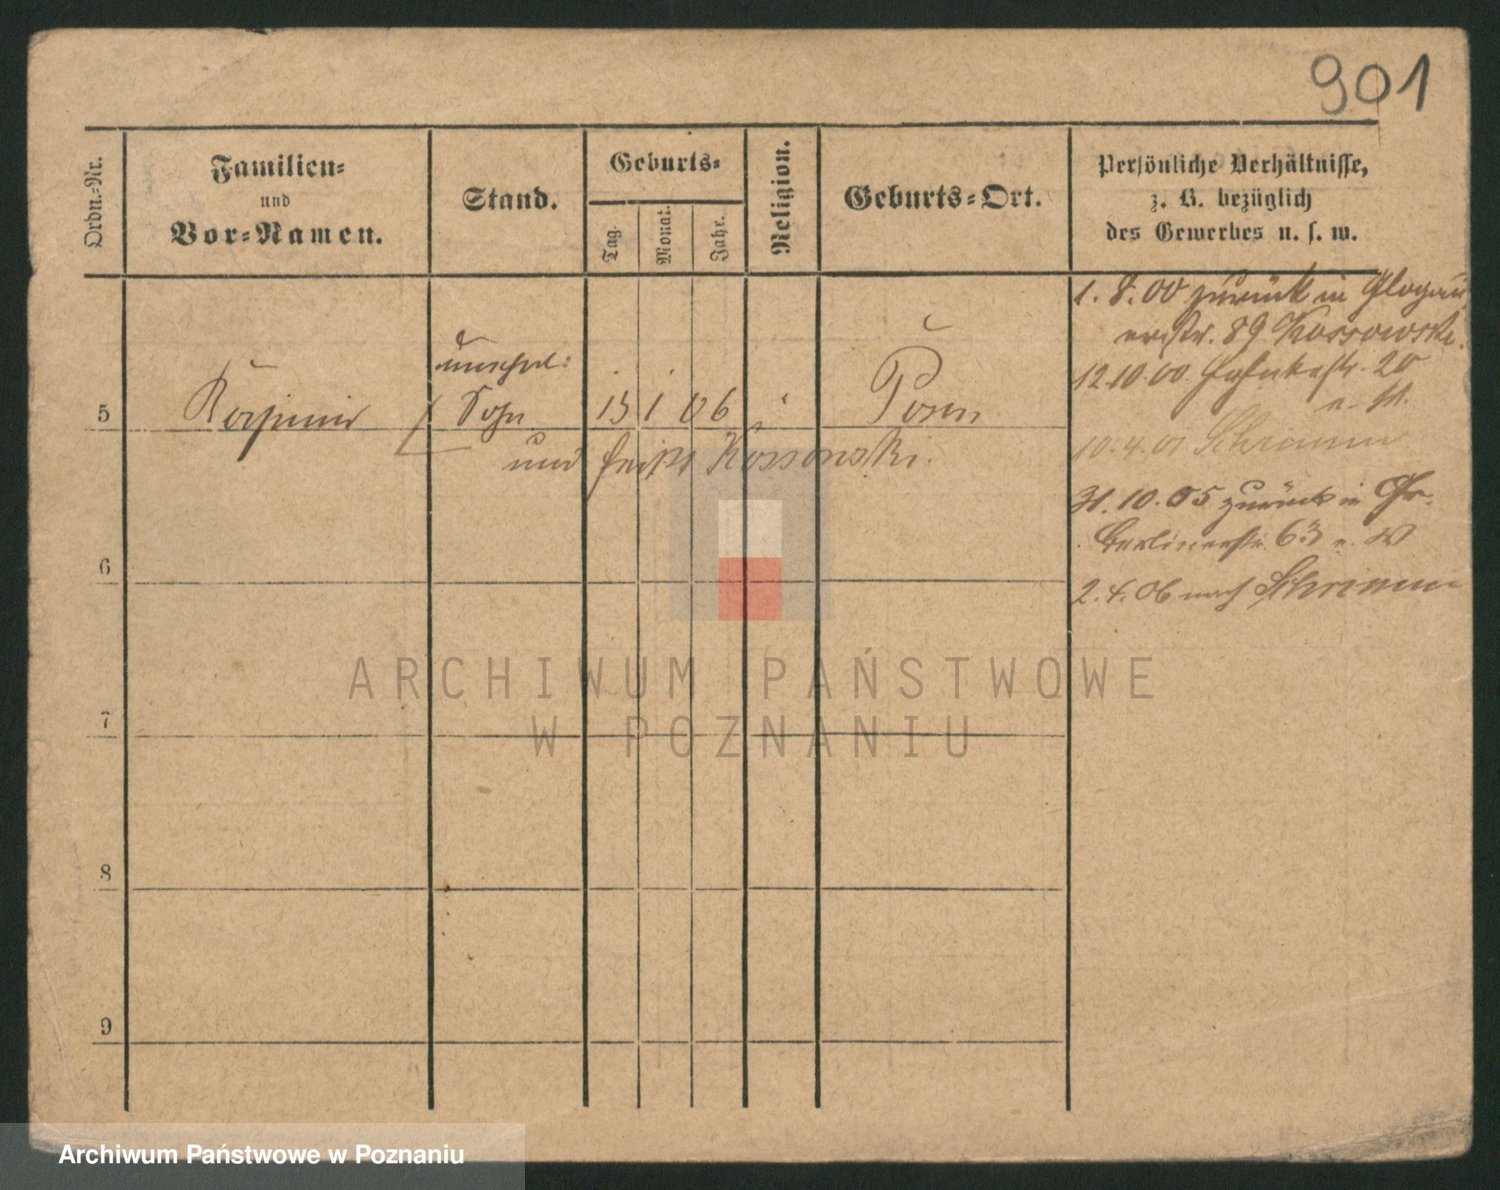 901
Ordn.-Nr.
Familien-
und
Vor-Namen.
Stand.
Geburts-
Tag.
Monat.
Jahr.
Religion.
Geburts-Ort.
Persönliche Verhältnisse,
z. B. bezüglich
des Gewerbes u. s. w.
5
Kasimir
unehel:
Sohn
1 06
Posen
und heißt Kossowski.
6
7
8
9
1. 8. 00 zurück in Glogau
erstr. 89 Kossowski.
12 10. 00 20
10. 4. 01 Schrimm
31. 10. 05 zurück in Gr.
Berlinerstr. 63
2. 4. 06 nach Schrimm
ARCHIWUM PAŃSTWOWE
W POZNANIU
Archiwum Państwowe w Poznaniu